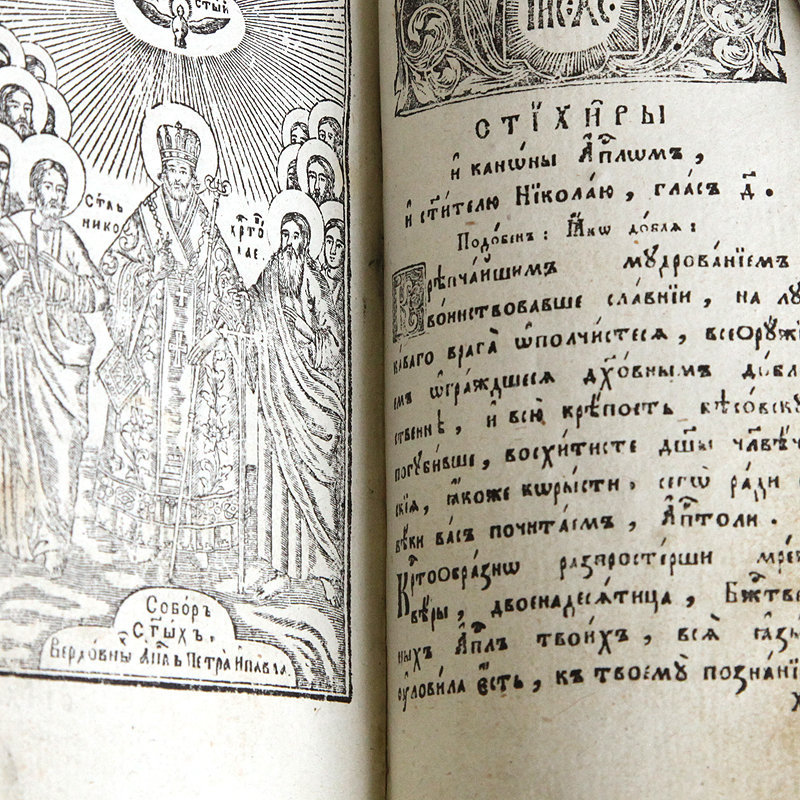 стый
Стль
нико
хрто
лае.
Собо́ръ
Ст҃ы́хъ,
Верхо́вны Ап҃лъ Петра̀ и҆ па́вла.
СТІХИ̑РЫ
и҆ канѡ́ны А҆п҃лѡмъ,
и҆ ст҃и́телю Нїкола́ю, гла́съ д҃.
Подо́бенъ: Ꙗ҆́кѡ до́блѧ:
Крѣпча́йшимъ мꙋдрова́нїемъ
во́инствовавше сла́внїи, на лꙋ
ка́ваго врага̀ ѡ҆полчи́стесѧ, всеорꙋ́жї
емъ ѡ҆гра́ждшесѧ дх҃о́внымъ до́бл
ственнѣ, и҆ всю̀ крѣ́пость бѣсо́вскꙋ
погꙋби́вше, восхи́тисте дш҃ы чл҃вѣч
скїѧ, ꙗ҆́коже кѡры́сти, сегѡ̀ ра́ди
вѣ́ки ва́съ почита́емъ, А҆пⷭ҇толи.
Крⷭ҇тоѡбра́знѡ разпросте́рши мре́
вѣ́ры, двоенадесѧ́тица, Бж҃тве
ныхъ А҆п҃лъ твои́хъ, всѧ̀ ꙗ҆зы
ᲂу҆лови́ла є҆́сть, къ твоемꙋ̀ позна́нї